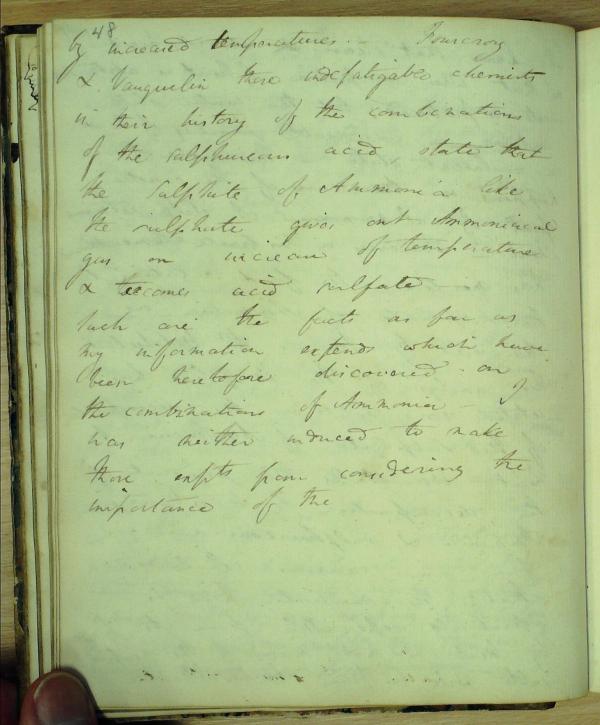 48
by increased temperatures. — Fourcroy
& Vauquelin these indefatigable chemists
in their history of the combinations
of the sulphureous acid, state that
the Sulphite of Ammonia like
the sulphate gives out Ammoniacal
gas on increase of temperature
& becomes acid sulfate
Such are the facts as far as
my information extends which have
been heretofore discovered on
the combinations of Ammonia — I
was neither induced to make
these expts from considering the
importance of the